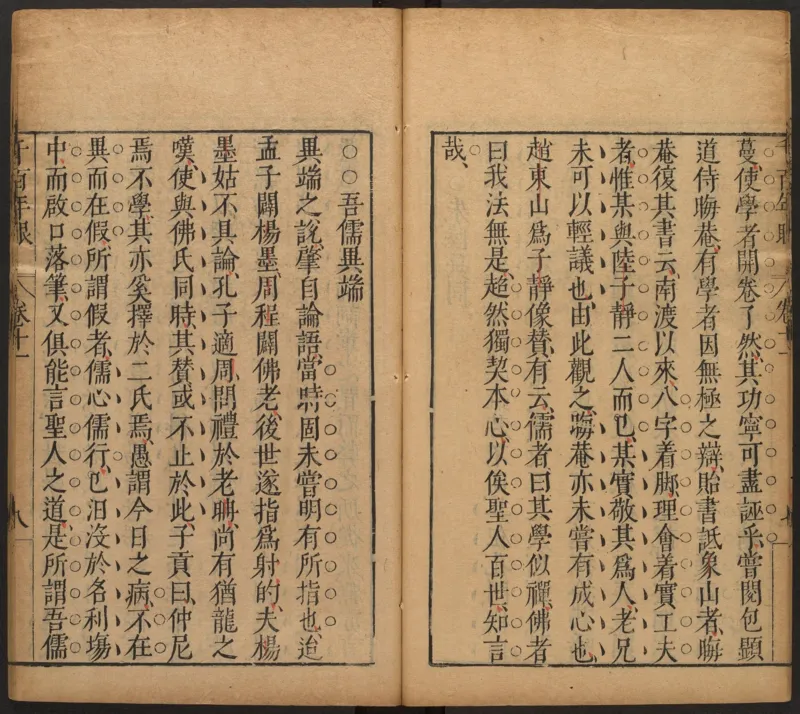 蔓使學者開卷了然其功寧可盡誣乎嘗閱包顯
道侍晦菴有學者因無極之辯貽書詆象山者晦
菴復其書云南渡以來八字着脚理會着實工夫
者惟某與陸子靜二人而已某實敬其爲人老兄
未可以輕議也由此觀之晦菴亦未嘗有成心也
趙東山爲子靜像贊有云儒者曰其學似禪佛者
曰我法無是超然獨契本心以俟聖人百世知言
哉
○○吾儒異端
異端之說肇自論語當時固未嘗明有所指也迨
孟子闢楊墨周程闢佛老後世遂指爲射的夫楊
墨姑不具論孔子適周問禮於老聃尚有猶龍之
嘆使與佛氏同時其贊或不止於此子貢曰仲尼
焉不學其亦奚擇於二氏焉愚謂今日之病不在
異而在假所謂假者儒心儒行已汨沒於名利塲
中而啟口落筆又俱能言聖人之道是所謂吾儒
千百年眼
卷十一
八